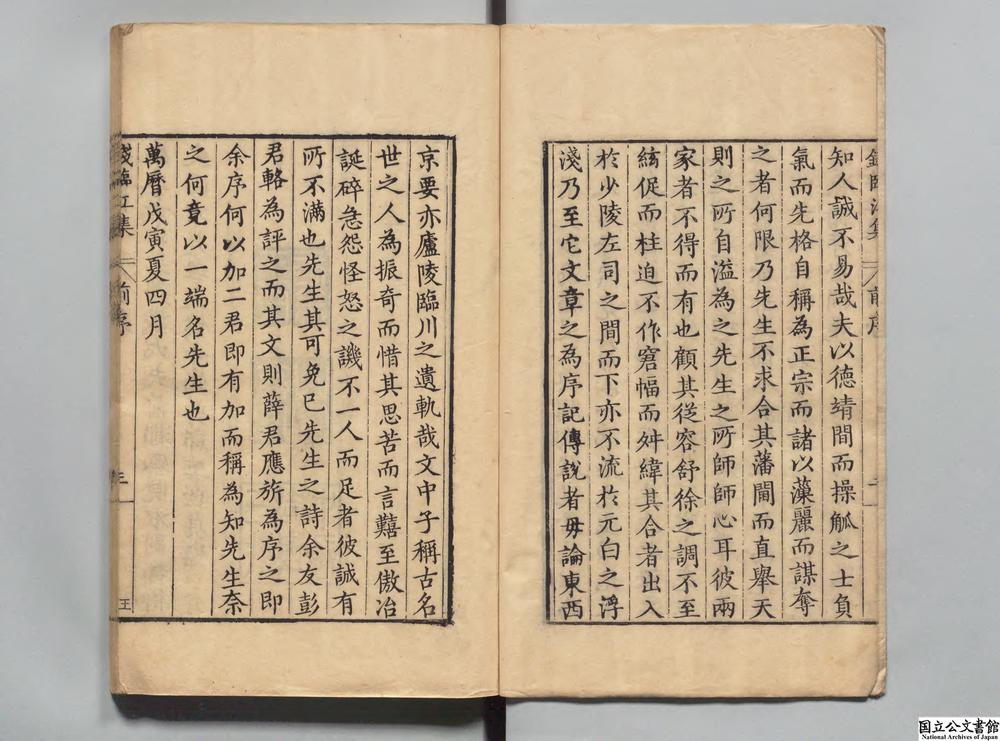 知人誠不易哉夫以德靖間而操觚之士負
氣而先格自稱為正宗而諸以藻麗而謀奪
之者何限乃先生不求合其藩閫而直舉天
則之所自溢為之先生之所師師心耳彼兩
家者不得而有也顧其從容舒徐之調不至
絃促而柱迫不作窘幅而舛緯其合者出入
於少陵左司之間而下亦不流於元白之浮
淺乃至它文章之為序記傳說者毋論東西
京要亦廬陵臨川之遺軌哉文中子稱古名
世之人為振奇而惜其思苦而言囏至傲冶
誕碎急怨怪怒之譏不一人而足者彼誠有
所不滿也先生其可免已先生之詩余友彭
君輅為評之而其文則薛君應旂為序之即
余序何以加二君即有加而稱為知先生奈
之何竟以一端名先生也
萬曆戊寅夏四月
錢臨江集 前序 三 王
国立公文書館
National Archives of Japan